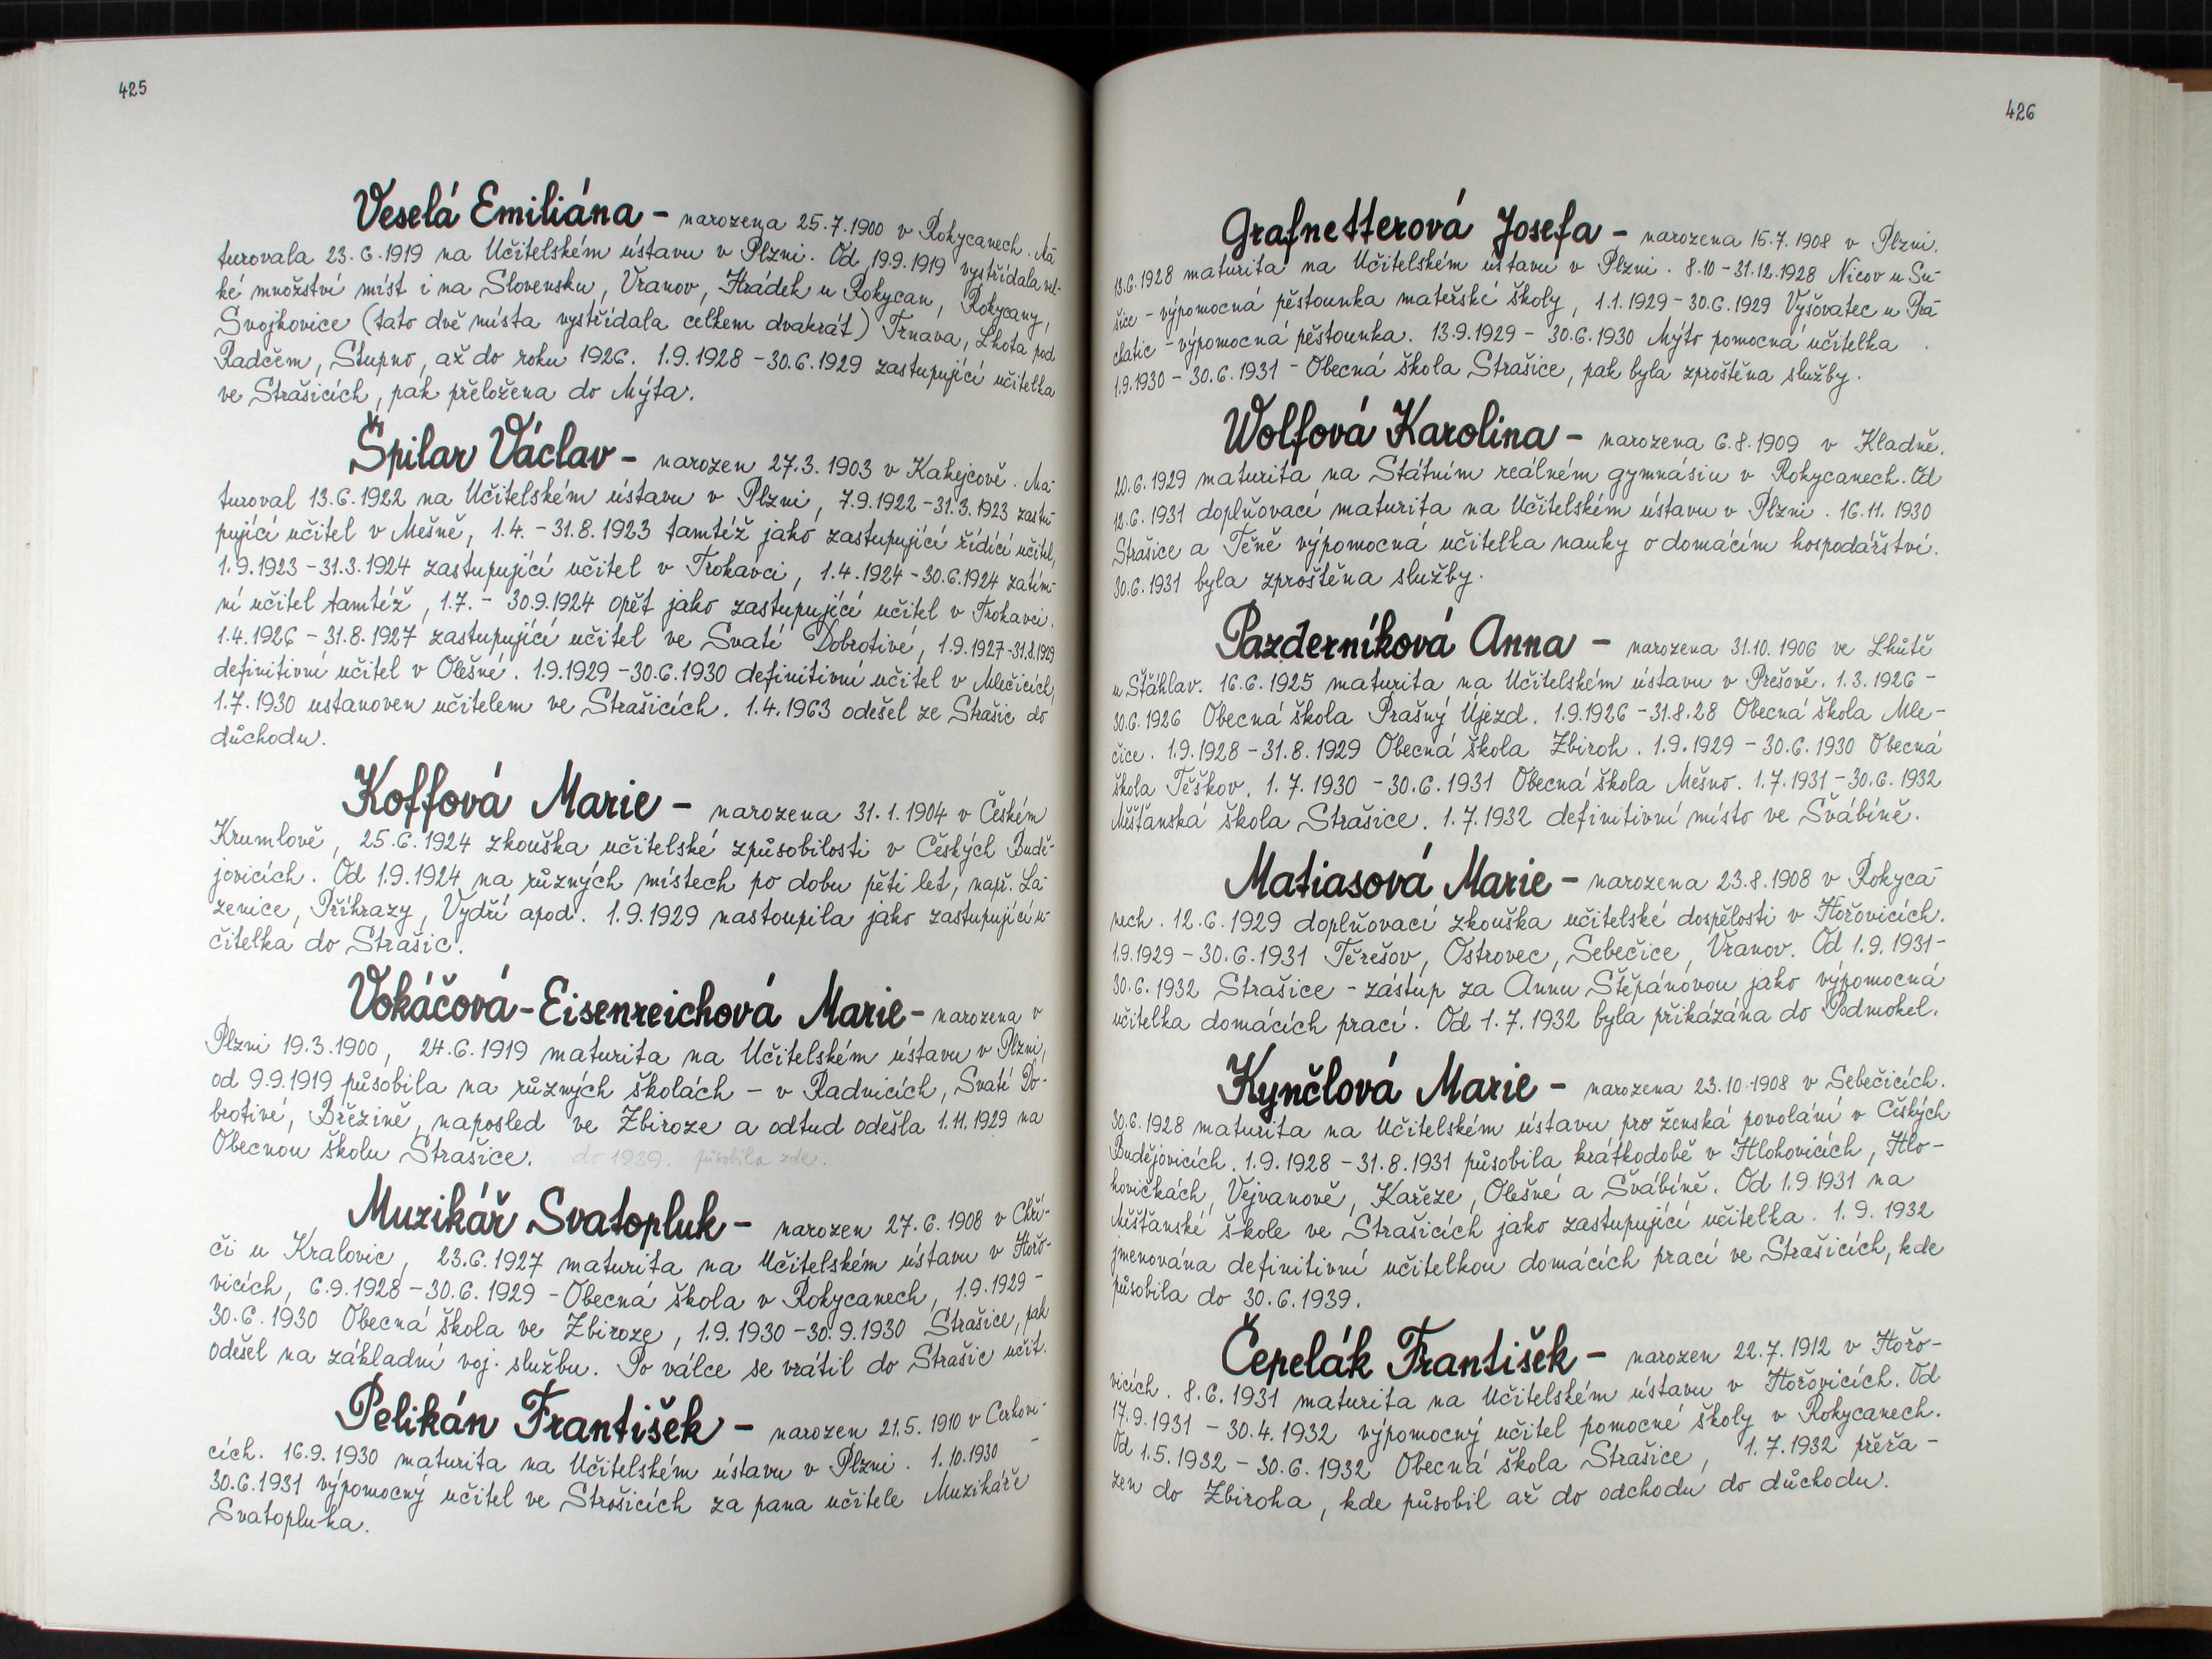 425
Veselá Emiliána - narozena 25.7.1900 v Rokycanech. Ma-
turovala 23.6.1919 na Učitelském ústavu v Plzni. Od 19.9.1919 vystřídala vel-
ké množství míst i na Slovensku, Vranov, Hrádek u Rokycan, Rokycany,
Svojkovice (tato dvě místa vystřídala celkem dvakrát) Trnava, Lhota pod
Radčem, Stupno, až do roku 1926. 1.9.1928 - 30.6.1929 zastupující učitelka
ve Strašicích, pak přeložena do Mýta.
Špilar Václav - narozen 27.3.1903 v Kakejcově. Ma-
turoval 13.6.1922 na Učitelském ústavu v Plzni, 7.9.1922 - 31.3.1923 zastu-
pující učitel v Mešně, 1.4. - 31.8.1923 tamtéž jako zastupující řídící učitel,
1.9.1923 - 31.3.1924 zastupující učitel v Trokavci, 1.4.1924 - 30.6.1924 zatím-
ní učitel tamtéž, 1.7. - 30.9.1924 opět jako zastupující učitel v Trokavci.
1.4.1926 - 31.8.1927 zastupující učitel ve Svaté Dobrotivé, 1.9.1927 - 31.8.1929
definitivní učitel v Olešné. 1.9.1929 - 30.6.1930 definitivní učitel v Mlečicích,
1.7.1930 ustanoven učitelem ve Strašicích. 1.4.1963 odešel ze Strašic do
důchodu.
Koffová Marie - narozena 31.1.1904 v Českém
Krumlově, 25.6.1924 zkouška učitelské způsobilosti v Českých Budě-
jovicích. Od 1.9.1924 na různých místech po dobu pěti let, např. La-
zenice, Příhrazy, Vydří apod. 1.9.1929 nastoupila jako zastupující u-
čitelka do Strašic.
Vokáčová-Eisenreichová Marie - narozena v
Plzni 19.3.1900, 24.6.1919 maturita na Učitelském ústavu v Plzni,
od 9.9.1919 působila na různých školách - v Radnicích, Svaté Do-
brotivé, Březině, naposled ve Zbiroze a odtud odešla 1.11.1929 na
Obecnou školu Strašice. do 1939. působila zde.
Muzikář Svatopluk - narozen 27.6.1908 v Chří-
či u Kralovic, 23.6.1927 maturita na Učitelském ústavu v Hořo-
vicích, 6.9.1928 - 30.6.1929 - Obecná škola v Rokycanech, 1.9.1929 -
30.6.1930 Obecná škola ve Zbiroze, 1.9.1930 - 30.9.1930 Strašice, pak
odešel na základní voj. službu. Po válce se vrátil do Strašic učit.
Pelikán František - narozen 21.5.1910 v Cerhovi-
cích. 16.9.1930 maturita na Učitelském ústavu v Plzni. 1.10.1930 -
30.6.1931 výpomocný učitel ve Strašicích za pana učitele Muzikáře
Svatopluka.
426
Grafnetterová Josefa - narozena 15.7.1908 v Plzni.
13.6.1928 maturita na Učitelském ústavu v Plzni. 8.10 - 31.12.1928 Nicov u Su-
šice - výpomocná pěstounka mateřské školy, 1.1.1929 - 30.6.1929 Vyšovatec u Pra-
chatic - výpomocná pěstounka. 13.9.1929 - 30.6.1930 Mýto pomocná učitelka.
1.9.1930 - 30.6.1931 - Obecná škola Strašice, pak byla zproštěna služby.
Wolfová Karolina - narozena 6.8.1909 v Kladně.
20.6.1929 maturita na Státním reálném gymnásiu v Rokycanech. Od
12.6.1931 doplňovací maturita na Učitelském ústavu v Plzni. 16.11.1930
Strašice a Těně výpomocná učitelka nauky o domácím hospodářství.
30.6.1931 byla zproštěna služby.
Pazderníková Anna - narozena 31.10.1906 ve Lhůtě
u Šťáhlav. 16.6.1925 maturita na Učitelském ústavu v Prešově. 1.3.1926 -
30.6.1926 Obecná škola Prašný Újezd. 1.9.1926 - 31.8.28 Obecná škola Mle-
čice. 1.9.1928 - 31.8.1929 Obecná škola Zbiroh. 1.9.1929 - 30.6.1930 Obecná
škola Těškov. 1.7.1930 - 30.6.1931 Obecná škola Mešno. 1.7.1931 - 30.6.1932
Měšťanská škola Strašice. 1.7.1932 definitivní místo ve Švábíně.
Matiasová Marie - narozena 23.8.1908 v Rokyca-
nech. 12.6.1929 doplňovací zkouška učitelské dospělosti v Hořovicích.
1.9.1929 - 30.6.1931 Terešov, Ostrovec, Sebečice, Vranov. Od 1.9.1931 -
30.6.1932 Strašice - zástup za Annu Štěpánovou jako výpomocná
učitelka domácích prací. Od 1.7.1932 byla přikázána do Podmokel.
Kynčlová Marie - narozena 23.10.1908 v Sebečicích.
30.6.1928 maturita na Učitelském ústavu pro ženská povolání v Českých
Budějovicích. 1.9.1928 - 31.8.1931 působila krátkodobě v Hlohovicích, Hlo-
hovičkách, Vejvanově, Kařeze, Olešné a Švábíně. Od 1.9.1931 na
Měšťanské škole ve Strašicích jako zastupující učitelka. 1.9.1932
jmenována definitivní učitelkou domácích prací ve Strašicích, kde
působila do 30.6.1939.
Čepelák František - narozen 22.7.1912 v Hořo-
vicích. 8.6.1931 maturita na Učitelském ústavu v Hořovicích. Od
17.9.1931 - 30.4.1932 výpomocný učitel pomocné školy v Rokycanech.
Od 1.5.1932 - 30.6.1932 Obecná škola Strašice, 1.7.1932 přeřa-
zen do Zbiroha, kde působil až do odchodu do důchodu.